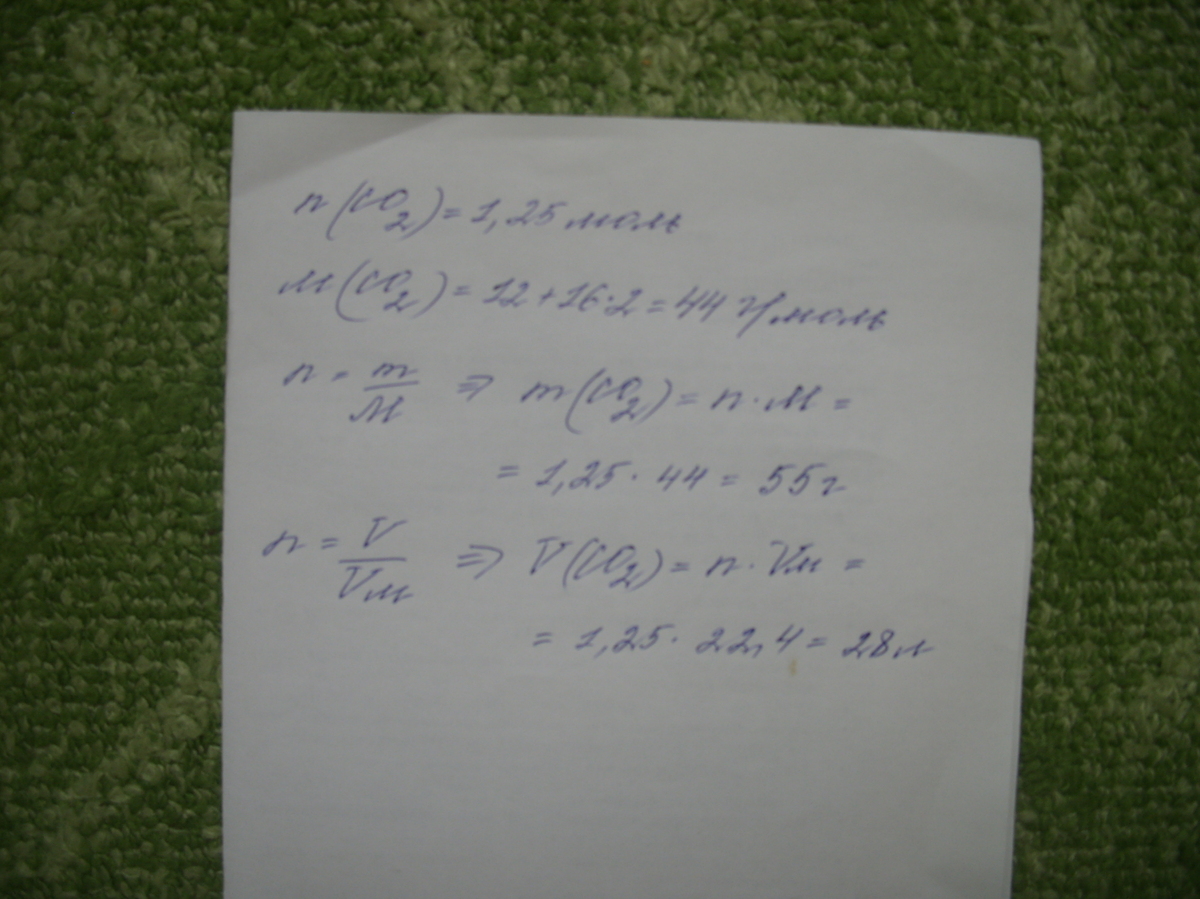 n(CO2) = 1,25 моль
M(CO2) = 12 + 16·2 = 44 г/моль
n = m/M ⇒ m(CO2) = n·M =
= 1,25 · 44 = 55 г
n = V/Vм ⇒ V(CO2) = n·Vм =
= 1,25 · 22,4 = 28 л